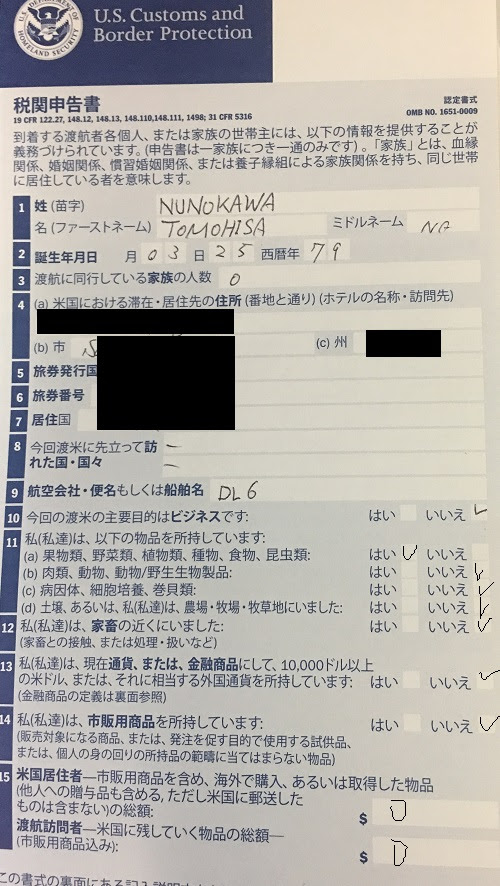 U.S. DEPARTMENT OF HOMELAND SECURITY
U.S. Customs and
Border Protection
税関申告書
19 CFR 122.27, 148.12, 148.13, 148.110,148.111, 1498; 31 CFR 5316
認定書式
OMB NO. 1651-0009
到着する渡航者各個人、または家族の世帯主には、以下の情報を提供することが
義務づけられています。(申告書は一家族につき一通のみです)。「家族」とは、血縁
関係、婚姻関係、慣習婚姻関係、または養子縁組による家族関係を持ち、同じ世帯
に居住している者を意味します。
1 姓 (苗字) NUNOKAWA
名 (ファーストネーム) TOMOHISA ミドルネーム NA
2 誕生年月日 月 03 日 25 西暦年 79
3 渡航に同行している家族の人数 0
4 (a) 米国における滞在・居住先の住所 (番地と通り) (ホテルの名称・訪問先)
(b) 市 (c) 州
5 旅券発行国
6 旅券番号
7 居住国
8 今回渡米に先立って訪 –
れた国・国々 –
9 航空会社・便名もしくは船舶名 DL6
10 今回の渡米の主要目的はビジネスです: はい いいえ ✓
11 私(私達)は、以下の物品を所持しています:
(a) 果物類、野菜類、植物類、種物、食物、昆虫類: はい ✓ いいえ
(b) 肉類、動物、動物/野生生物製品: はい いいえ ✓
(c) 病因体、細胞培養、巻貝類: はい いいえ ✓
(d) 土壌、あるいは、私(私達)は、農場・牧場・牧草地にいました: はい いいえ ✓
12 私(私達)は、家畜の近くにいました: はい いいえ ✓
(家畜との接触、または処理・扱いなど)
13 私(私達)は、現在通貨、または、金融商品にして、10,000ドル以上
の米ドル、または、それに相当する外国通貨を所持しています: はい いいえ ✓
(金融商品の定義は裏面参照)
14 私(私達)は、市販用商品を所持しています: はい いいえ ✓
(販売対象になる商品、または、発注を促す目的で使用する試供品、
または、個人の身の回りの所持品の範疇に当てはまらない物品)
15 米国居住者—市販用商品を含め、海外で購入、あるいは取得した物品
(他人への贈与品も含める, ただし米国に郵送した
ものは含まない)の総額: $ 0
渡航訪問者—米国に残していく物品の総額—
(市販用商品込み): $ 0